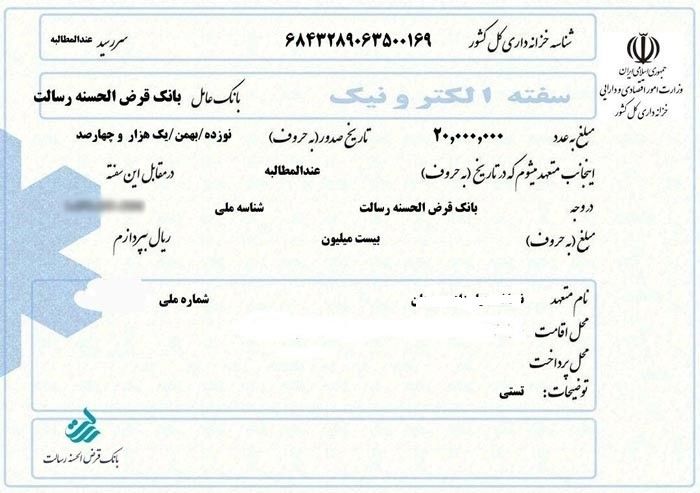 جمهوری اسلامی ایران
وزارت امور اقتصادی و دارایی
خزانه داری کل کشور
شناسه خزانه داری کل کشور ۶۸۴۳۲۸۹۰۶۳۵۰۰۱۶۹ سررسید عندالمطالبه
سفته الکترونیک بانک عامل بانک قرض الحسنه رسالت
مبلغ به عدد ۲۰,۰۰۰,۰۰۰ تاریخ صدور (به حروف) نوزده/بهمن/یک هزار و چهارصد
اینجانب متعهد میشوم که در تاریخ (به حروف) عندالمطالبه در مقابل این سفته
در وجه بانک قرض الحسنه رسالت شناسه ملی
مبلغ (به حروف) بیست میلیون ریال بپردازم
نام متعهد شماره ملی
محل اقامت
محل پرداخت
توضیحات: تستی
رسالت
بانک قرض الحسنه رسالت